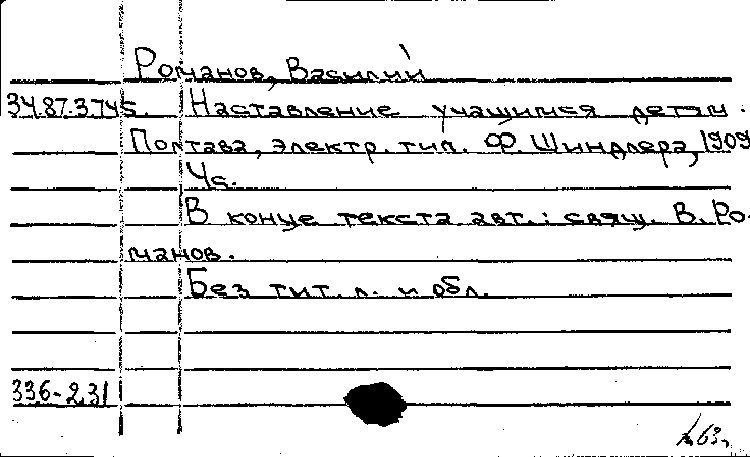 Романов, Василий
34.87.3.745. Наставление учащимся детям.
Полтава, электр. тип. Ф. Шиндлера, 1909
4с.
В конце текста авт.: свящ. В. Ро-
манов.
Без тит. л. и обл.
336-231